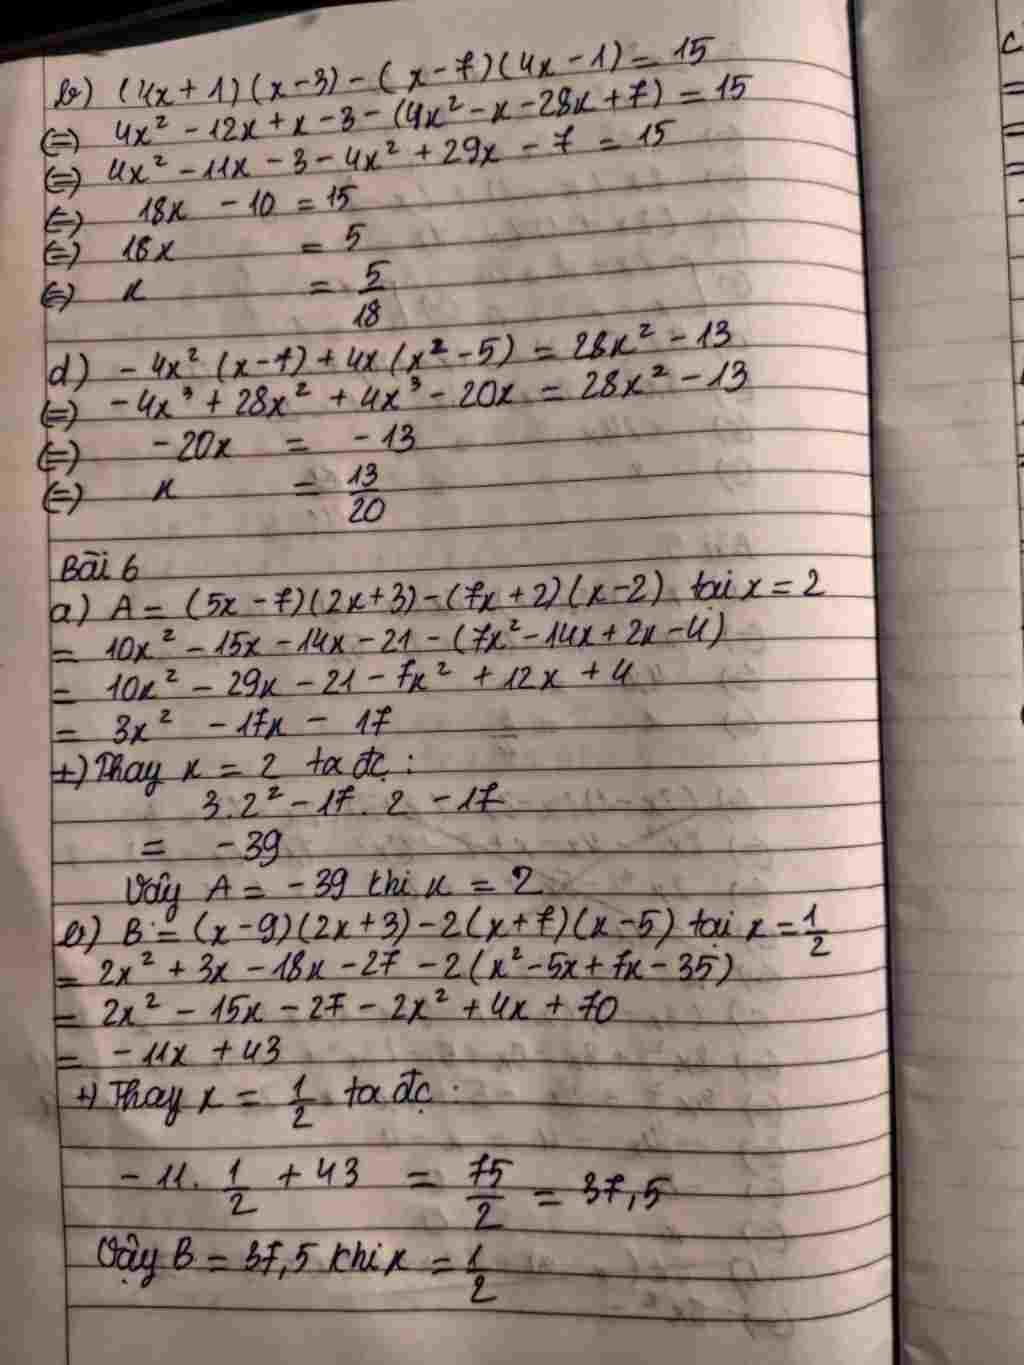 b) (4x + 1)(x - 3) - (x - 7)(4x - 1) = 15
(=) 4x² - 12x + x - 3 - (4x² - x - 28x + 7) = 15
(=) 4x² - 11x - 3 - 4x² + 29x - 7 = 15
(=) 18x - 10 = 15
(=) 18x = 5
(=) x = 5/18
d) - 4x² (x - 7) + 4x (x² - 5) = 28x² - 13
(=) - 4x³ + 28x² + 4x³ - 20x = 28x² - 13
(=) - 20x = - 13
(=) x = 13/20
Bài 6
a) A = (5x - 7)(2x + 3) - (7x + 2)(x - 2) tại x = 2
= 10x² - 15x - 14x - 21 - (7x² - 14x + 2x - 4)
= 10x² - 29x - 21 - 7x² + 12x + 4
= 3x² - 17x - 17
+) Thay x = 2 ta đc :
3.2² - 17. 2 - 17
= - 39
Vậy A = - 39 khi x = 2
b) B = (x - 9)(2x + 3) - 2(x + 7)(x - 5) tại x = 1/2
= 2x² + 3x - 18x - 27 - 2(x² - 5x + 7x - 35)
= 2x² - 15x - 27 - 2x² + 4x + 70
= - 11x + 43
+) Thay x = 1/2 ta đc :
- 11. 1/2 + 43 = 75/2 = 37,5
Vậy B = 37,5 khi x = 1/2